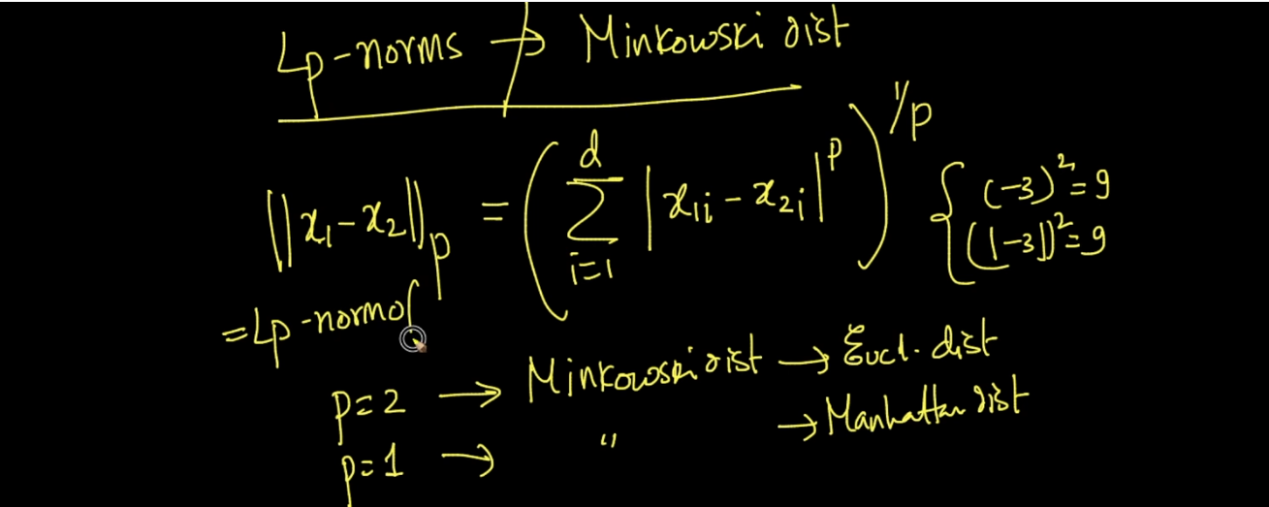 Lp-norms → Minkowski dist
||x₁-x₂||p = (∑ᵈᵢ₌₁ |x₁ᵢ - x₂ᵢ|ᵖ)^1/p { (-3)² = 9
(|-3|)² = 9
= Lp-norm of
p=2 → Minkowski dist → Eucl. dist
p=1 → " → Manhattan dist